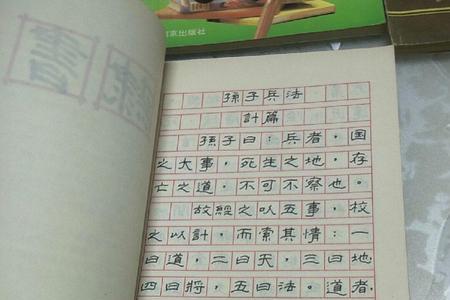 京出版社
孫子兵法
計篇
孫子曰：兵者，国
之大事，死生之地，存
亡之道，不可不察也。
故經之以五事，校
之以計，而索其情：一
曰道，二曰天，三曰地
四曰將，五曰法。道者，